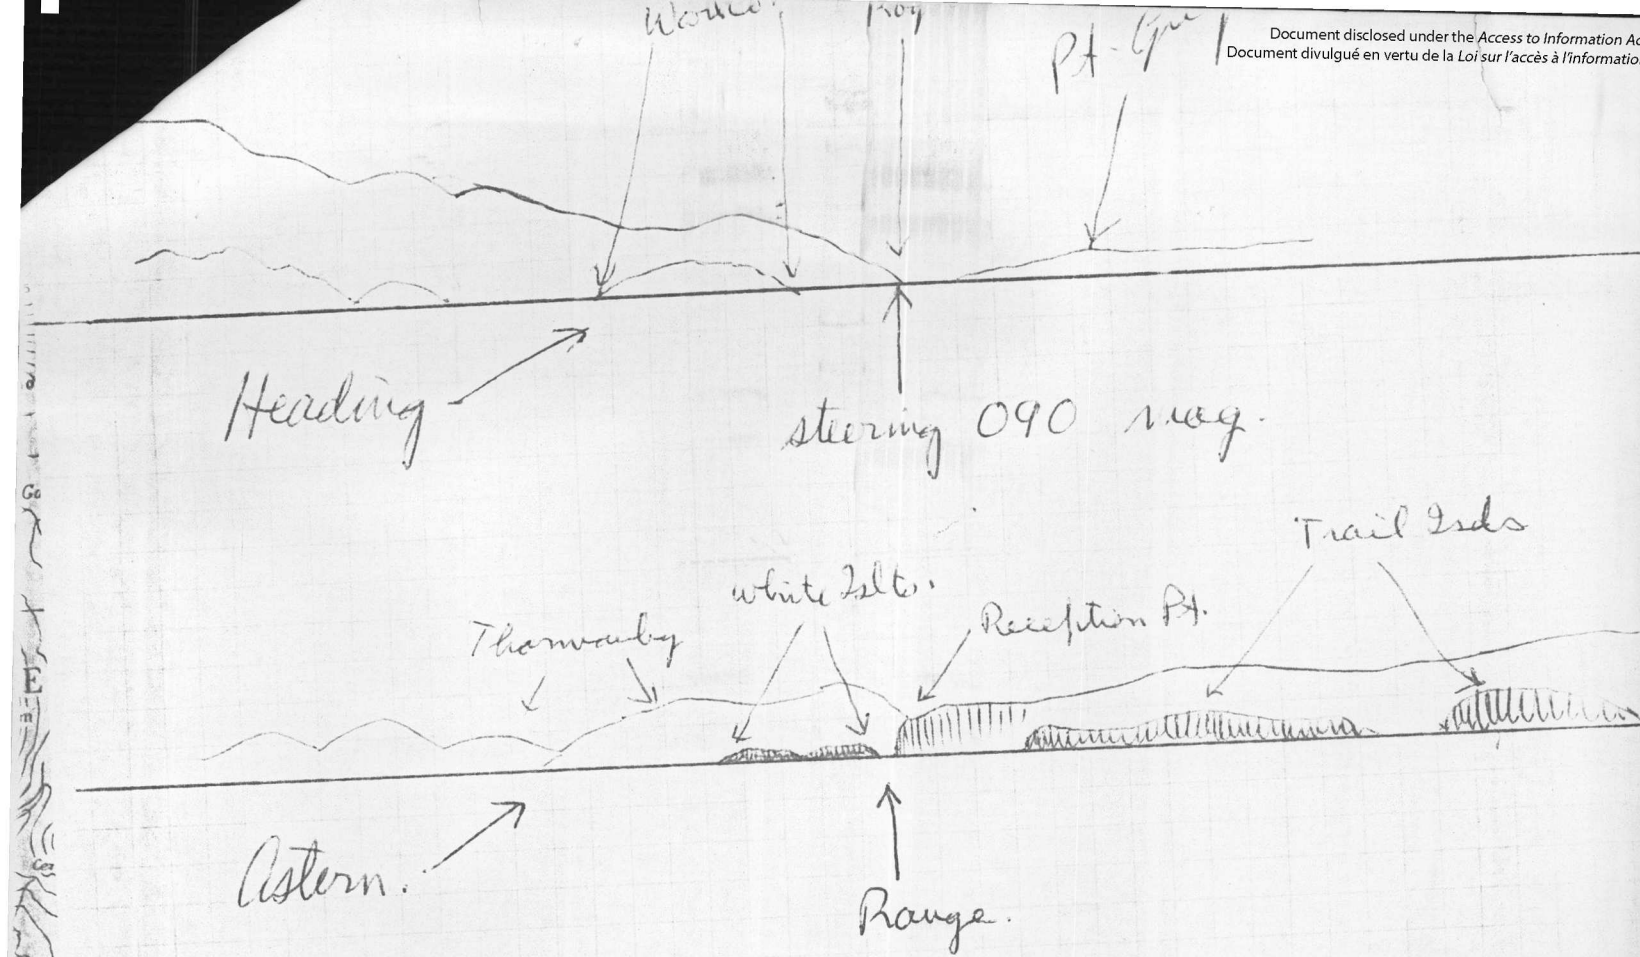 Document disclosed under the Access to Information Ac
Document divulgué en vertu de la Loi sur l'accès à l'informatio
Pt.
Heading
steering 090 mag.
Trail Islds
White Islts.
Reception Pt.
Thormanby
Astern.
Range.